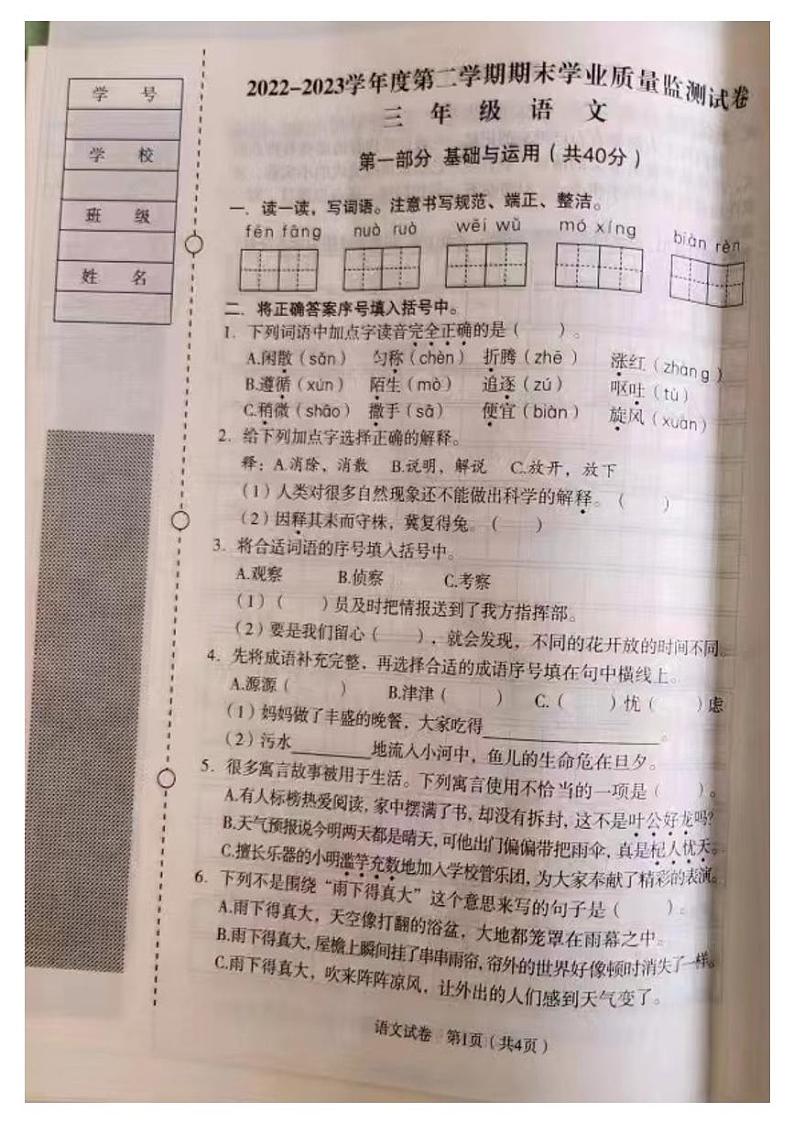 学 号
学 校
班 级
姓 名
2022-2023学年度第二学期期末学业质量监测试卷
三 年 级 语 文
第一部分 基础与运用（共40分）
一. 读一读，写词语。注意书写规范、端正、整洁。
fēn fāng nuò ruò wēi wǔ mó xíng biàn rèn
二. 将正确答案序号填入括号中。
1. 下列词语中加点字读音完全正确的是（ ）。
A.闲散（sǎn） 匀称（chèn） 折腾（zhē ） 涨红（zhàng）
B.遵循（xún） 陌生（mò） 追逐（zú） 呕吐（tù）
C.稍微（shāo） 撒手（sā） 便宜（biàn） 旋风（xuàn）
2. 给下列加点字选择正确的解释。
释：A.消除，消散 B.说明，解说 C.放开，放下
（1）人类对很多自然现象还不能做出科学的解释。（ ）
（2）因释其耒而守株，冀复得兔。（ ）
3. 将合适词语的序号填入括号中。
A.观察 B.侦察 C.考察
（1）（ ）员及时把情报送到了我方指挥部。
（2）要是我们留心（ ），就会发现，不同的花开放的时间不同。
4. 先将成语补充完整，再选择合适的成语序号填在句中横线上。
A.源源（ ） B.津津（ ） C.（ ）忧（ ）虑
（1）妈妈做了丰盛的晚餐，大家吃得________________。
（2）污水________地流入小河中，鱼儿的生命危在旦夕。
5. 很多寓言故事被用于生活。下列寓言使用不恰当的一项是（ ）。
A.有人标榜热爱阅读，家中摆满了书，却没有拆封，这不是叶公好龙吗？
B.天气预报说今明两天都是晴天，可他出门偏偏带把雨伞，真是杞人忧天。
C.擅长乐器的小明滥竽充数地加入学校管乐团，为大家奉献了精彩的表演。
6. 下列不是围绕“雨下得真大”这个意思来写的句子是（ ）。
A.雨下得真大，天空像打翻的浴盆，大地都笼罩在雨幕之中。
B.雨下得真大，屋檐上瞬间挂了串串雨帘，帘外的世界好像顿时消失了一样。
C.雨下得真大，吹来阵阵凉风，让外出的人们感到天气变了。
语文试卷 第1页（共4页）